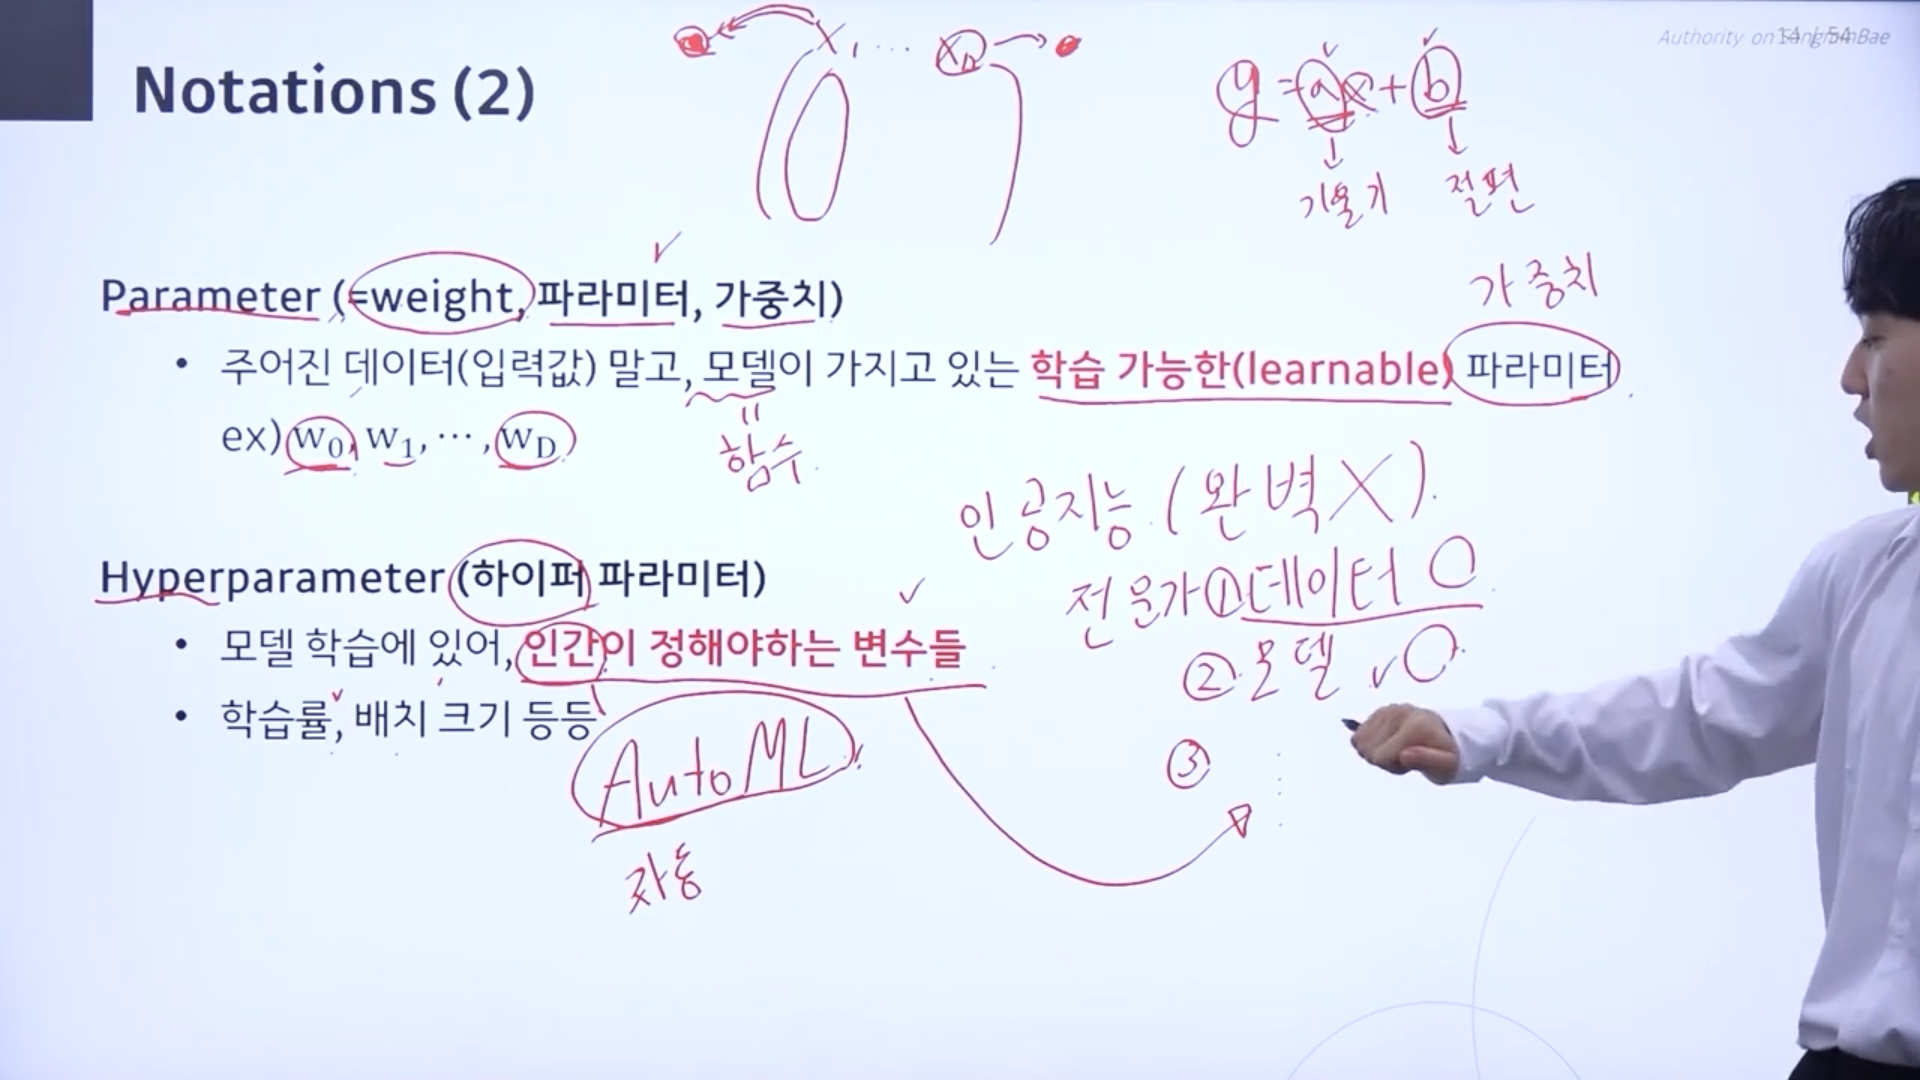 Authority on SangminBae
14 / 54
Notations (2)
X, ... X_D
y = ax + b
기울기 절편
Parameter (=weight, 파라미터, 가중치)
가중치
• 주어진 데이터(입력값) 말고, 모델이 가지고 있는 학습 가능한(learnable) 파라미터
ex) w₀, w₁, ⋯ , w_D
"
함수
인공지능 (완벽X).
Hyperparameter (하이퍼 파라미터)
전문가 ① 데이터 O
• 모델 학습에 있어, 인간이 정해야하는 변수들
② 모델 O
• 학습률, 배치 크기 등등
AutoML
③
자동